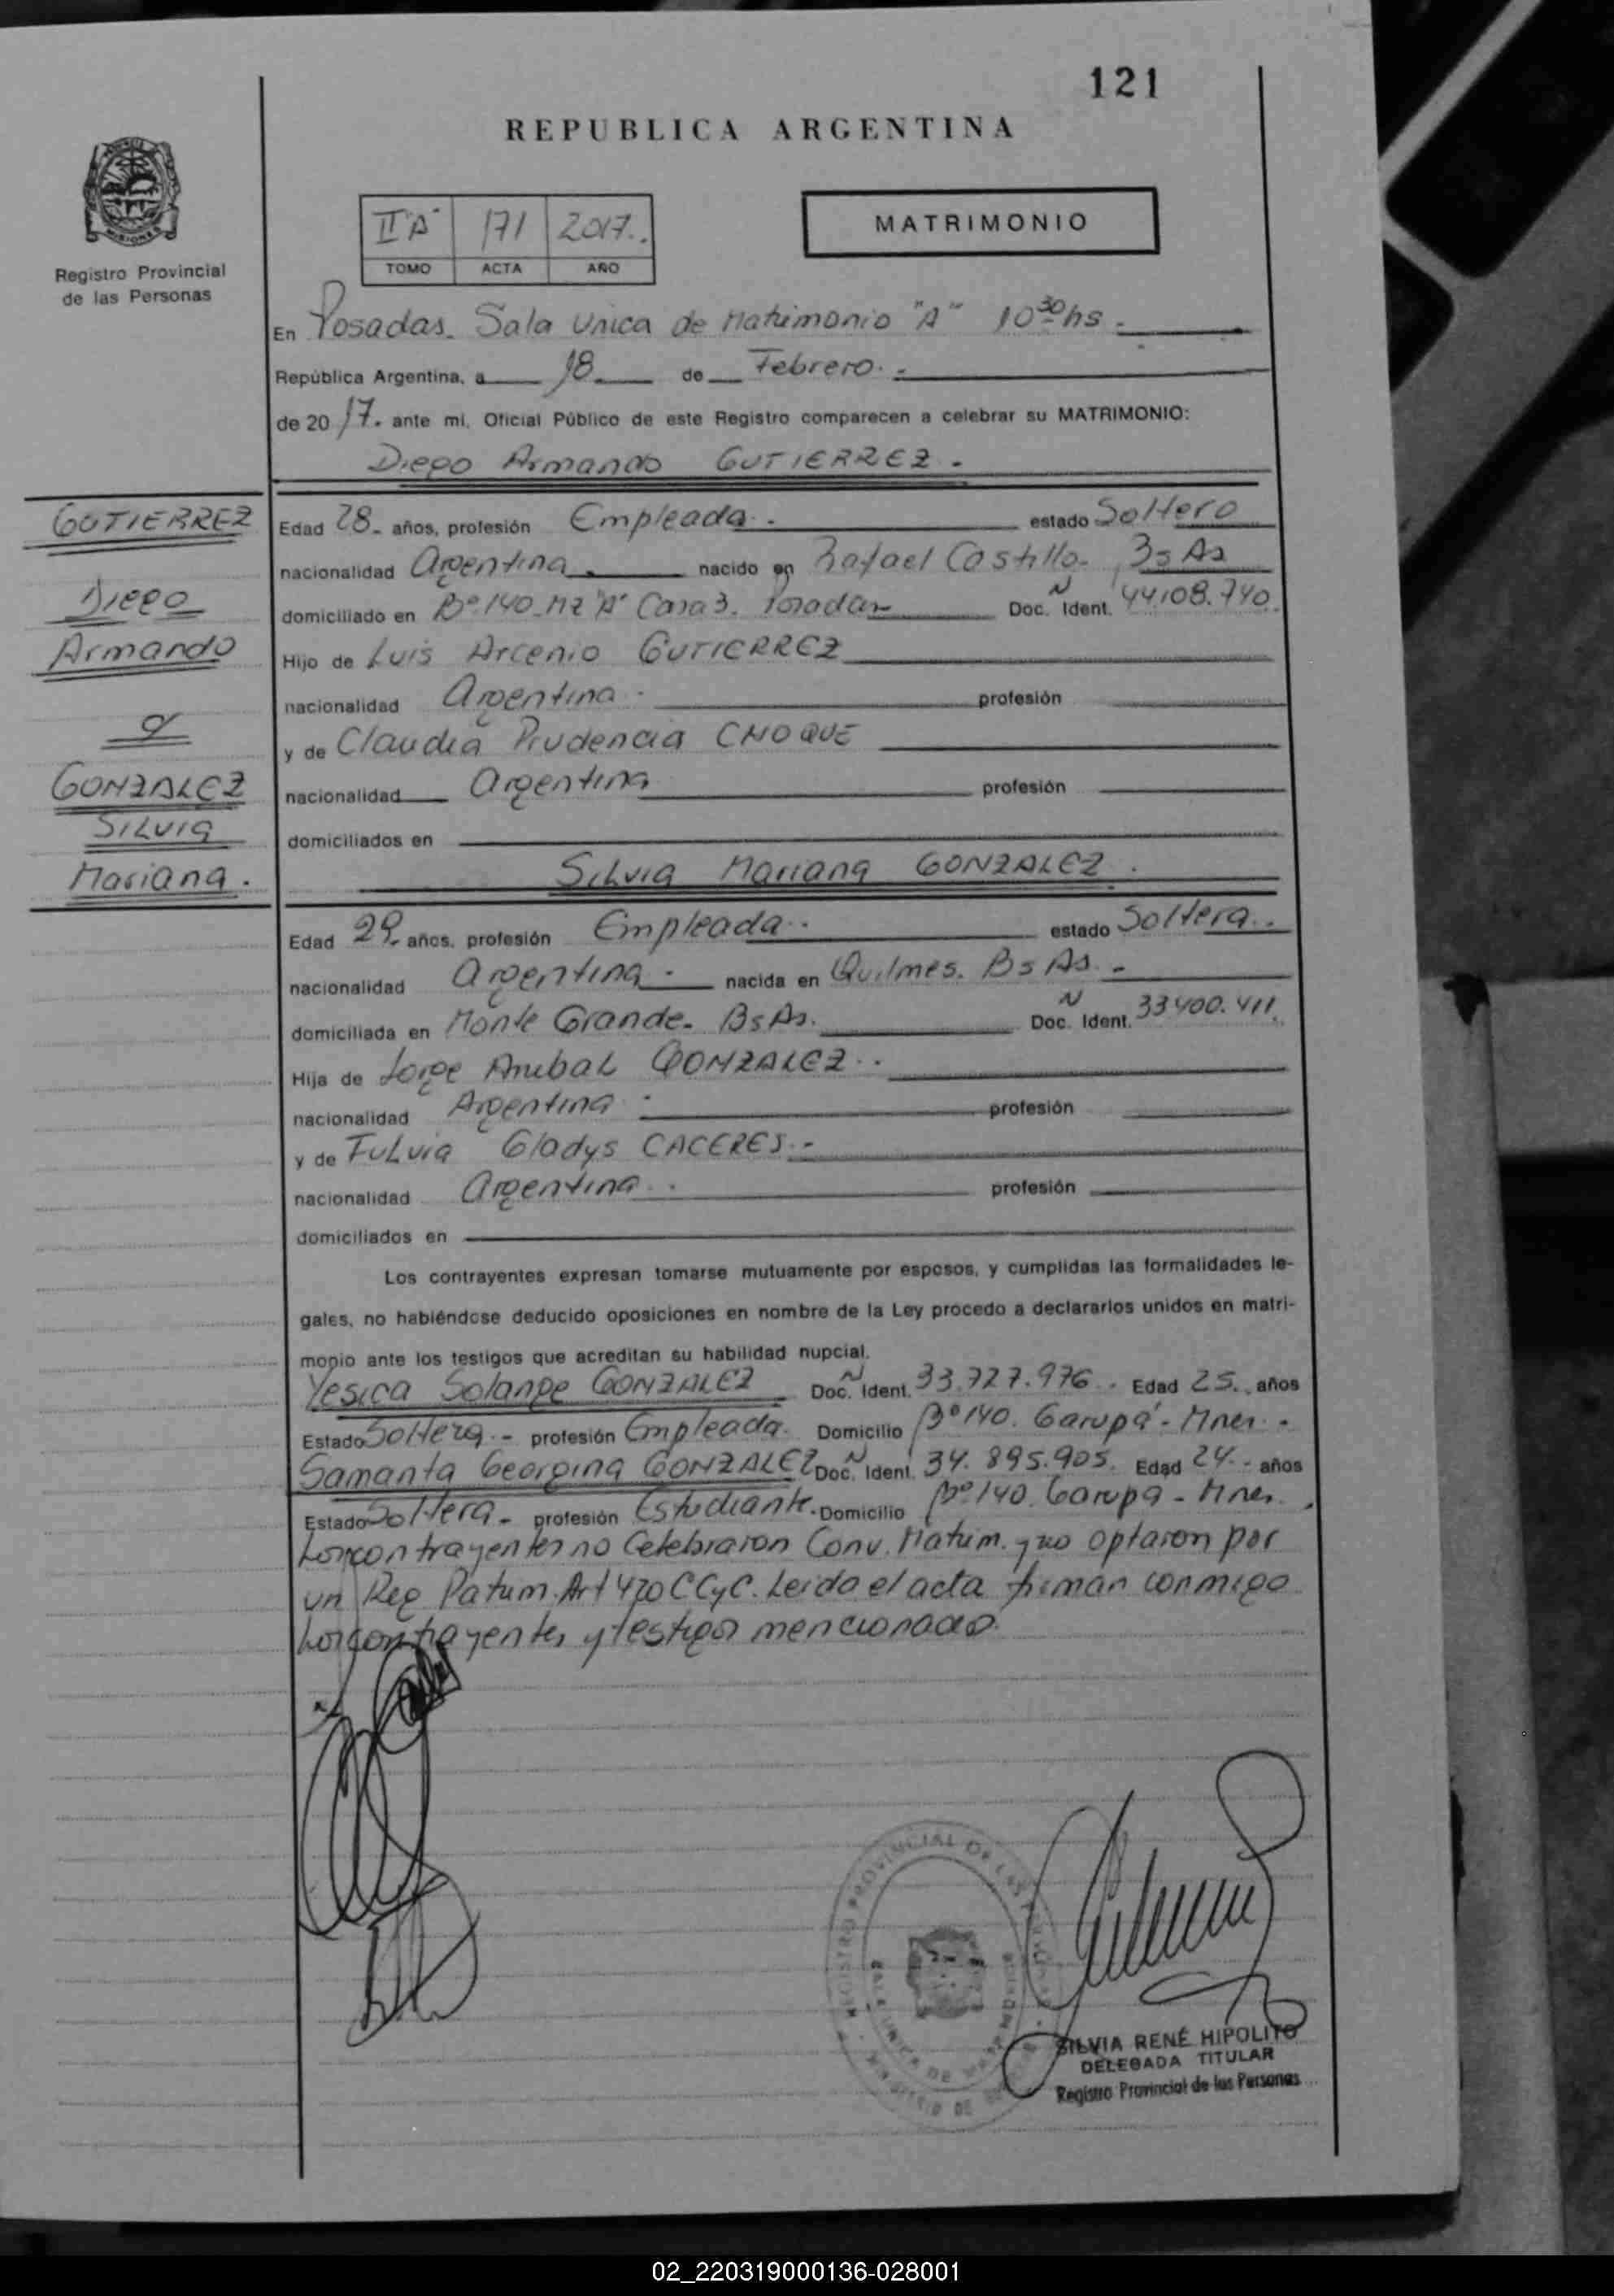 121
REPUBLICA ARGENTINA
MISIONES
Registro Provincial
de las Personas
II "A" 171 2017.
TOMO ACTA AÑO
MATRIMONIO
En Posadas. Sala Unica de Matrimonio "A" 10 30 hs.
República Argentina, a 18 de Febrero.
de 2017. ante mi, Oficial Público de este Registro comparecen a celebrar su MATRIMONIO:
Diego Armando GUTIERREZ.
GUTIERREZ
Diego
Armando
GONZALEZ
Silvia
Mariana.
Edad 28 años, profesión Empleada. estado Soltero
nacionalidad Argentina. nacido en Rafael Castillo. Bs As
domiciliado en Bº 140 Mz "A" Casa 3. Posadas Doc. N Ident. 44.108.740
Hijo de Luis Arcenio GUTIERREZ
nacionalidad Argentina. profesión
y de Claudia Prudencia CHOQUE
nacionalidad Argentina profesión
domiciliados en
Silvia Mariana GONZALEZ.
Edad 29 años, profesión Empleada. estado Soltera.
nacionalidad Argentina. nacida en Quilmes. Bs As.
domiciliada en Monte Grande. Bs As. Doc. N Ident. 33400.411.
Hija de Jorge Anibal GONZALEZ.
nacionalidad Argentina profesión
y de Fulvia Gladys CACERES.
nacionalidad Argentina. profesión
domiciliados en
Los contrayentes expresan tomarse mutuamente por esposos, y cumplidas las formalidades le-
gales, no habiéndose deducido oposiciones en nombre de la Ley procedo a declararlos unidos en matri-
monio ante los testigos que acreditan su habilidad nupcial.
Yesica Solange GONZALEZ Doc. N Ident. 33.727.976. Edad 25. años
Estado Soltera.- profesión Empleada. Domicilio Bº 140. Garupá - Mnes.
Samanta Georgina GONZALEZ Doc. N Ident. 34.895.905. Edad 24. años
Estado Soltera. profesión Estudiante. Domicilio Bº 140. Garupa - Mnes.
Los contrayentes no Celebraron Conv. Matrim. y no optaron por
un Reg Patrim. Art 420 CCyC. Leida el acta firman conmigo
Los contrayentes y testigos mencionado.
REGISTRO PROVINCIAL DE LAS PERSONAS
SALA UNICA DE MATRIMONIO
SILVIA RENÉ HIPOLITO
DELEGADA TITULAR
Registro Provincial de las Personas
02_220319000136-028001